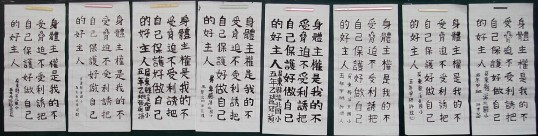 身體主權是我的不
受脅迫不受利誘把
自己保護好做自己
的好主人
身體主權是我的不
受脅迫不受利誘把
自己保護好做自己
的好主人
身體主權是我的不
受脅迫不受利誘把
自己保護好做自己
的好主人
身體主權是我的不
受脅迫不受利誘把
自己保護好做自己
的好主人
身體主權是我的不
受脅迫不受利誘把
自己保護好做自己
的好主人
身體主權是我的不
受脅迫不受利誘把
自己保護好做自己
的好主人
身體主權是我的不
受脅迫不受利誘把
自己保護好做自己
的好主人
身體主權是我的不
受脅迫不受利誘把
自己保護好做自己
的好主人